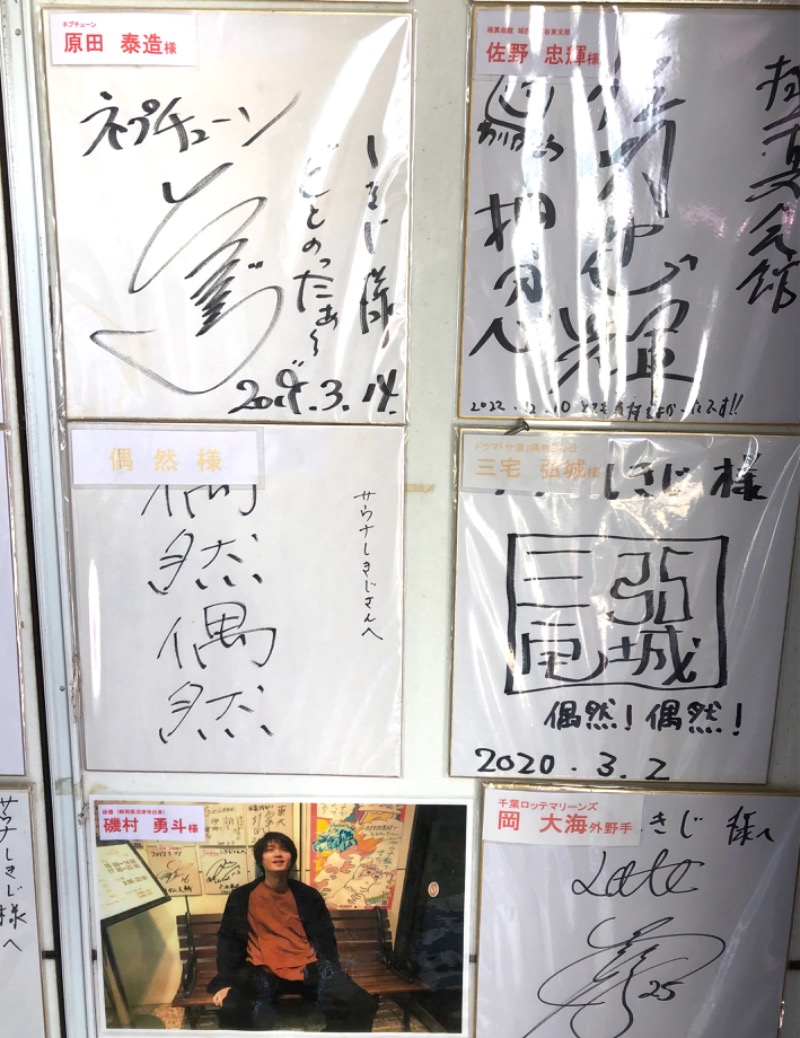 ネプチューン
原田 泰造様
ネプチューン
しきじ様
ととのったぁ〜
2019.3.14.
佐野 忠輝様
極真会館
佐野忠輝
押忍
2022.12.10
偶然様
サウナしきじさんへ
偶然偶然
三宅 弘城様
しきじ様
三宅弘城
偶然!偶然!
2020.3.2
サウナしきじ様へ
磯村 勇斗様
千葉ロッテマリーンズ
岡 大海外野手
きじ 様へ
25